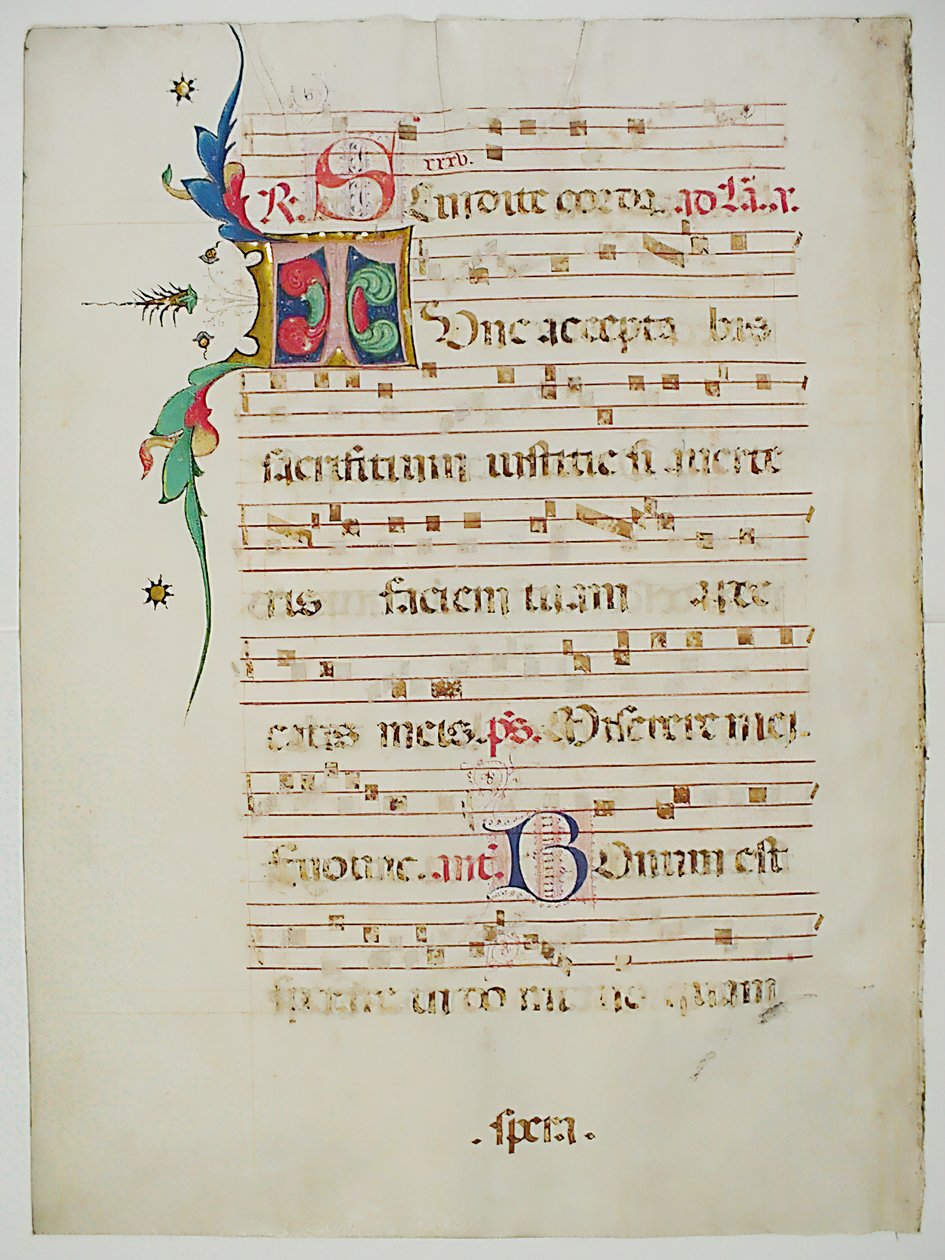 xxxv.
R. Scindite corda. ad
TVnc accepta bis
sacrifitium iustitie si auerte
ris faciem tuam apec
catis meis. ps. Miserere mei.
Euouae. ant. BOnum est
in do mi no quam
. spera .